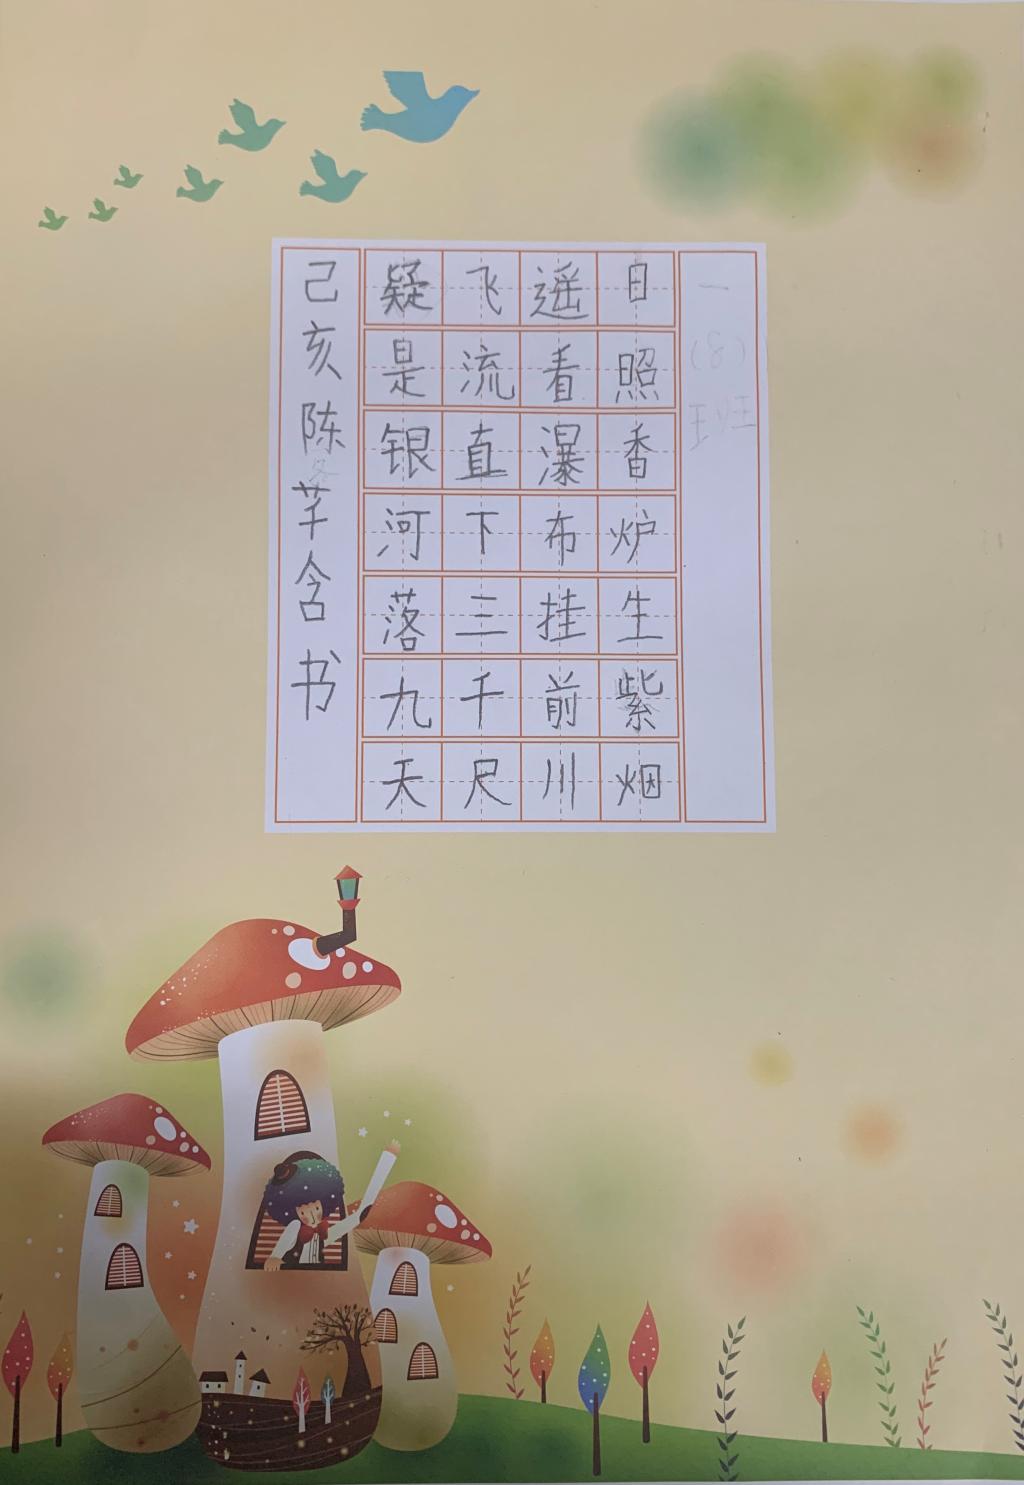 一(8)班
日照香炉生紫烟
遥看瀑布挂前川
飞流直下三千尺
疑是银河落九天
己亥陈芊含书